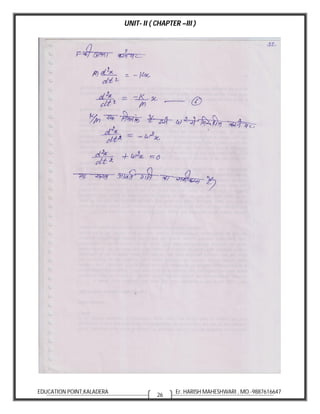 UNIT- II ( CHAPTER –III )
F की तुलना करने पर
m d²x/dt² = -Kx
d²x/dt² = -K/m x —— ⑥
K/m एक नियतांक है इसे ω² से निरूपित करने पर
d²x/dt² = -ω²x
d²x/dt² + ω²x = 0
यह सरल आवर्त गति का समीकरण है
EDUCATION POINT,KALADERA 26 Er. HARISH MAHESHWARI , MO.-9887616647